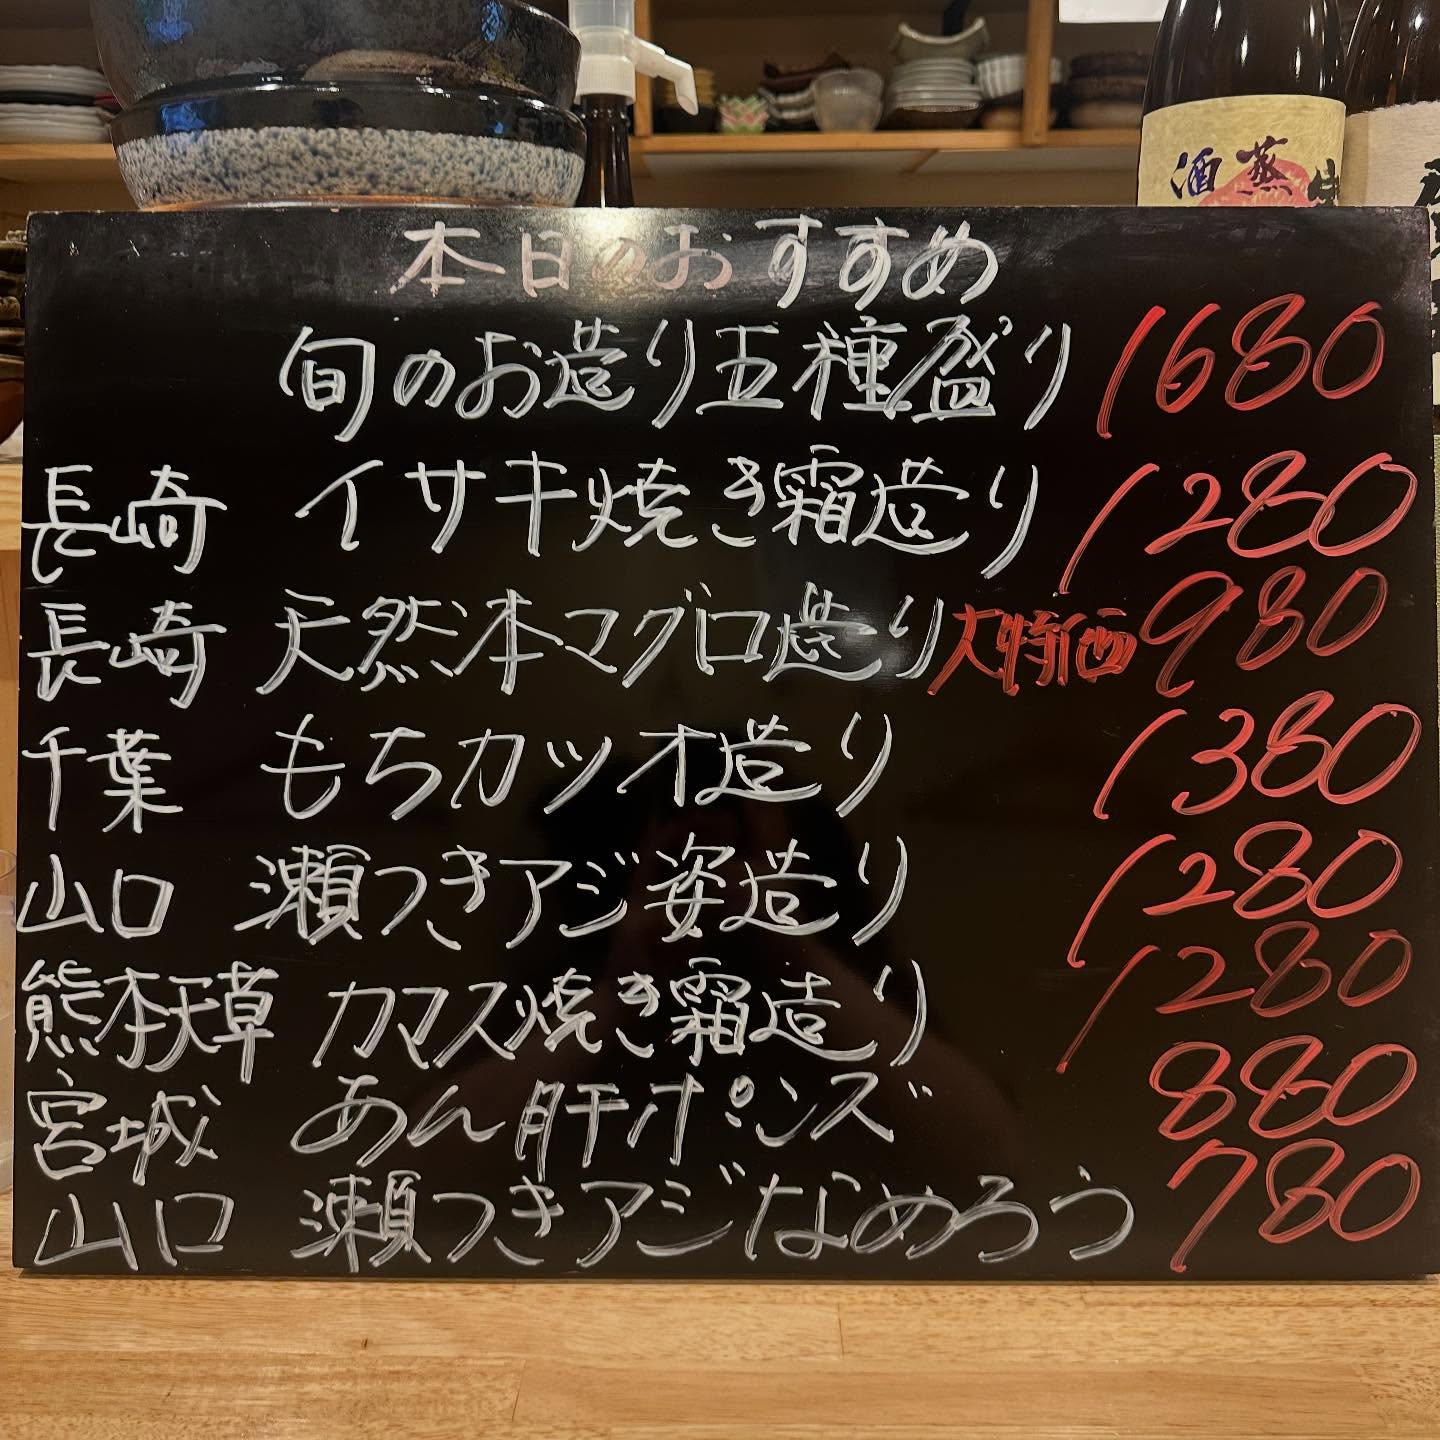 酒蒸
本日のおすすめ
旬のお造り五種盛り 1680
長崎 イサキ焼き霜造り 1280
長崎 天然本マグロ造り 大特価 980
千葉 もちカツオ造り 1380
山口 瀬つきアジ姿造り 1280
熊本天草 カマス焼き霜造り 1280
宮城 あん肝ポンズ 880
山口 瀬つきアジなめろう 780